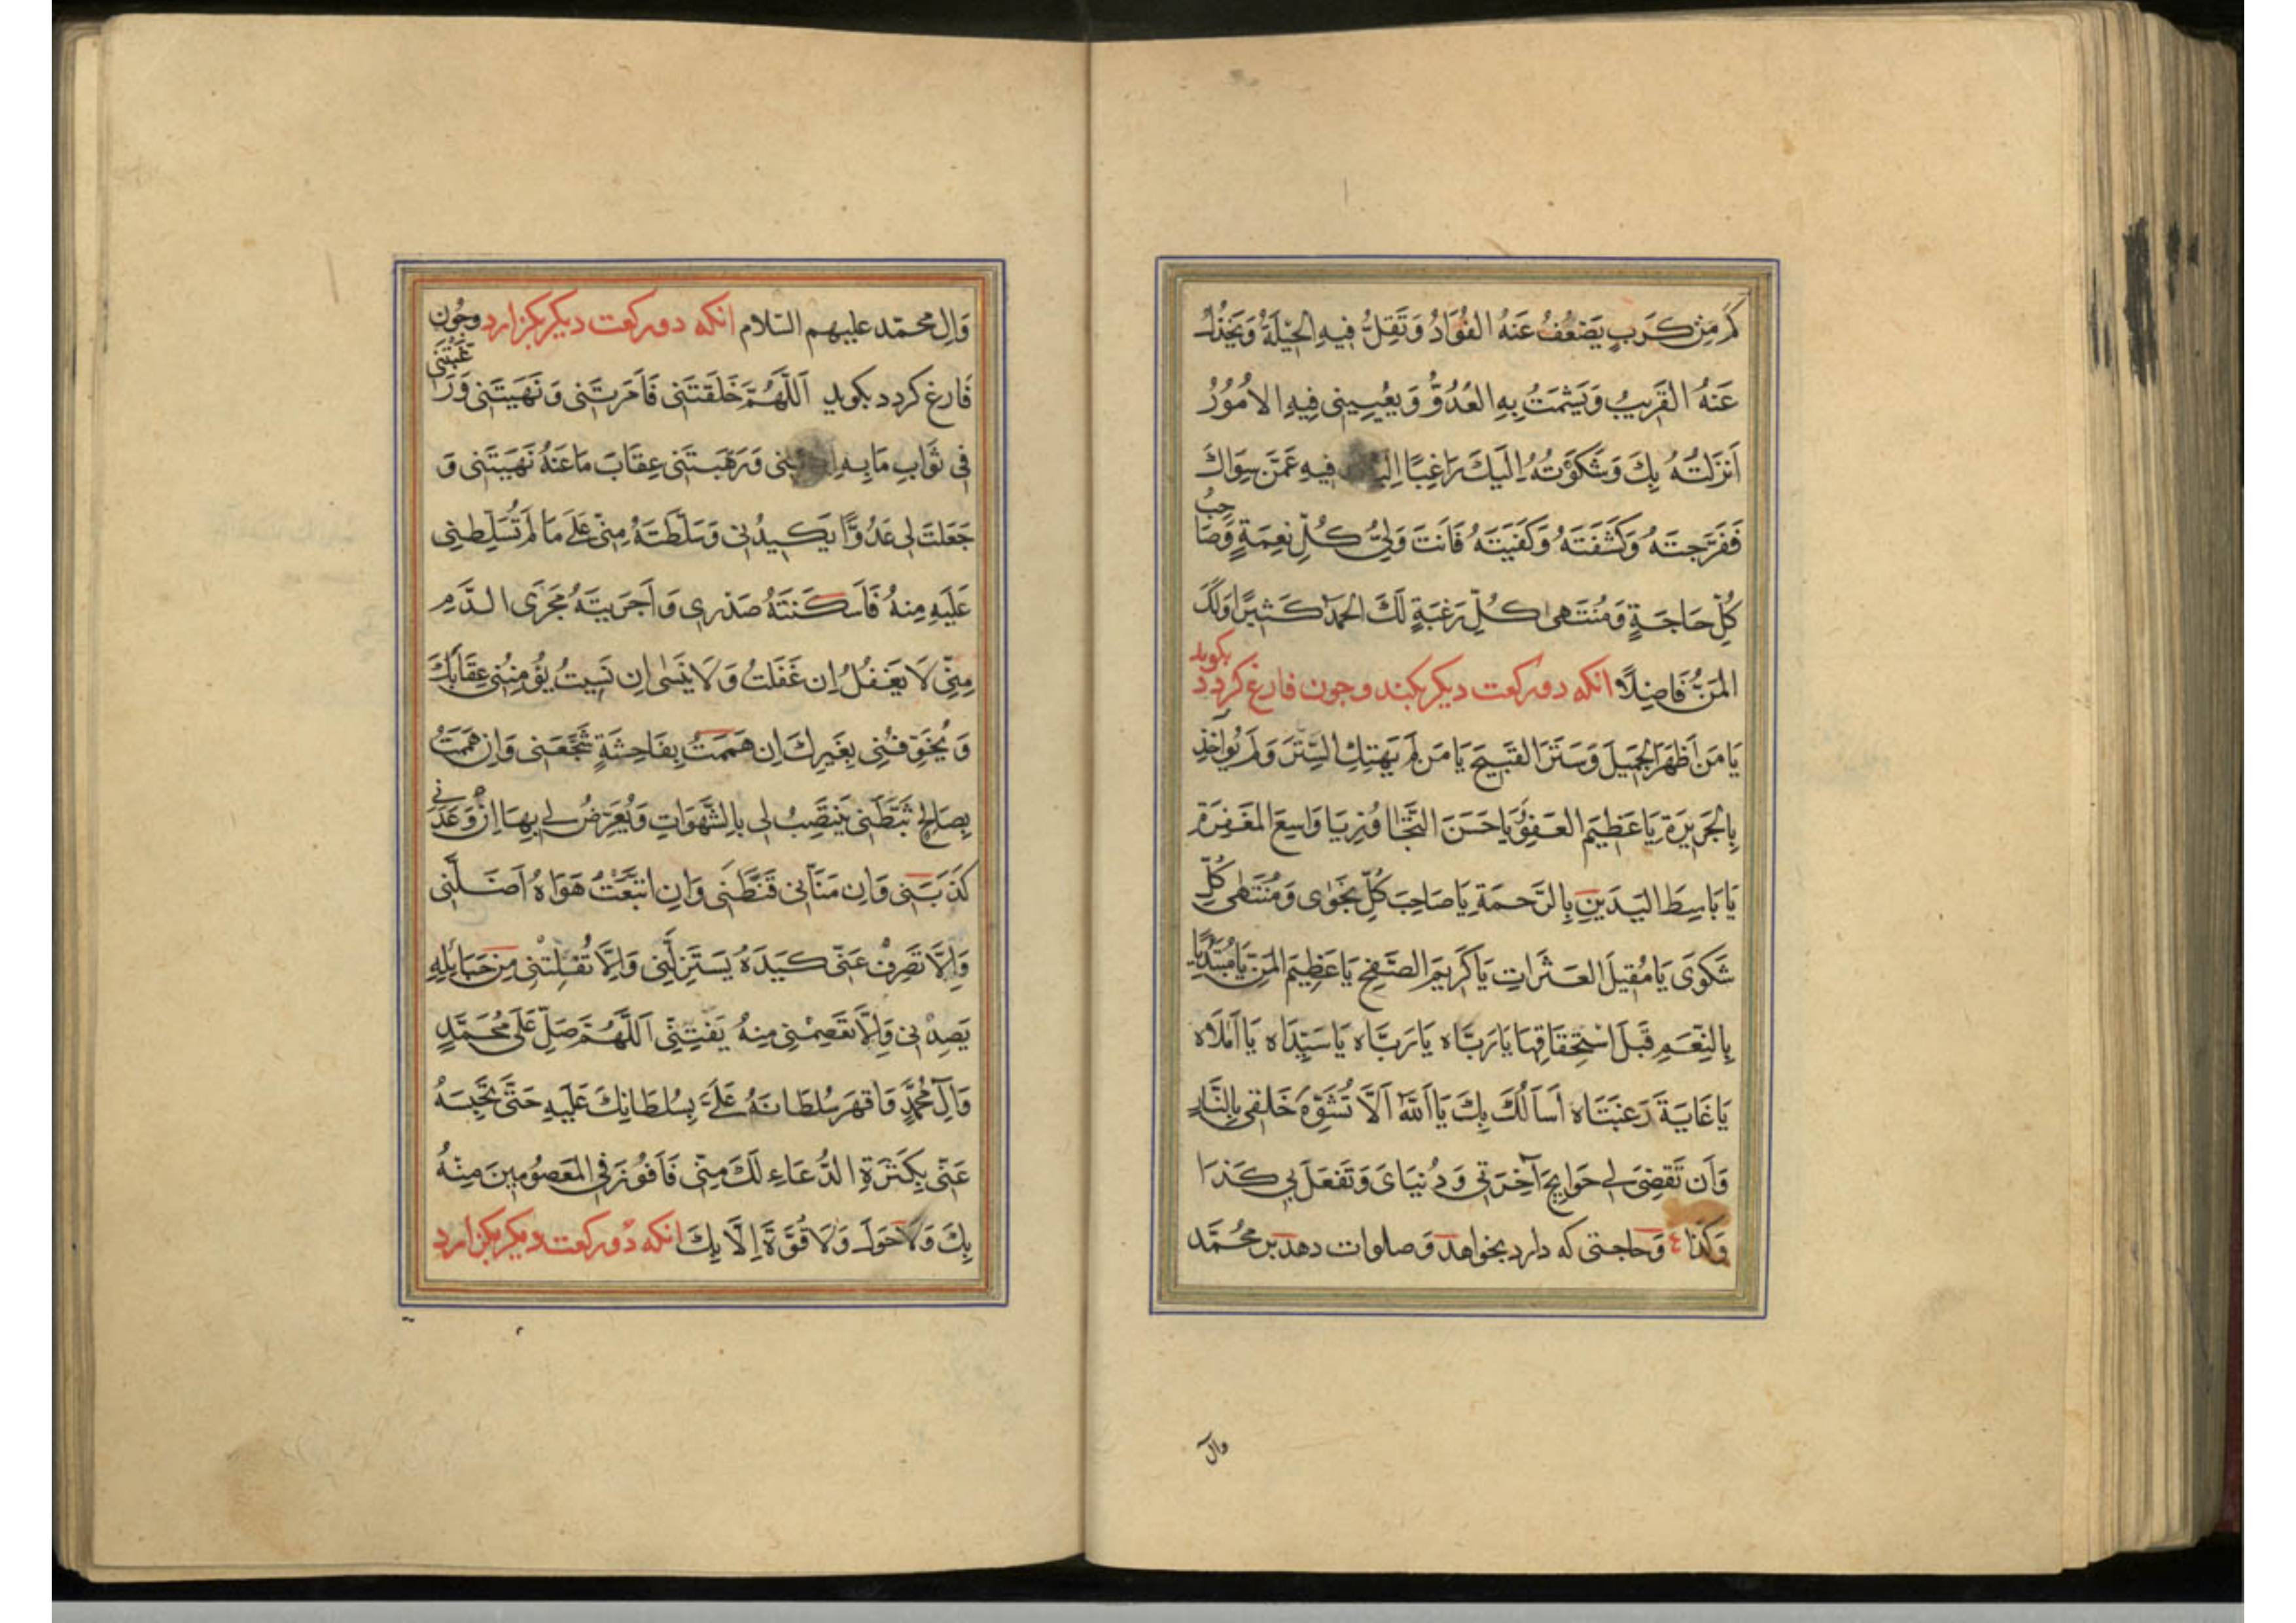 كَمْ مِنْ كَرَبٍ يَضْعُفُ عَنْهُ الفُؤَادُ وَتَقِلُّ فِيهِ الْحِيْلَةُ وَيَخْذُلُ
عَنْهُ القَرِيبُ وَيَشْمَتُ بِهِ العَدُوُّ وَيُعْيِينِى فِيهِ الاُمُوُرُ
اَنْزَلْتُهُ بِكَ وَشَكَوْتُهُ اِلَيْكَ رَاغِبًا اِلَيْكَ فِيهِ عَمَّنْ سِوَاكَ
فَفَرَّجْتَهُ وَكَشَفْتَهُ وَكَفَيْتَهُ فَاَنْتَ وَلِىُّ كُلِّ نِعْمَةٍ وَصَاحِبُ
كُلِّ حَاجَةٍ وَمُنْتَهىٰ كُلِّ رَغْبَةٍ لَكَ الحَمْدُ كَثِيرًا وَلَكَ
المَنُّ فَاضِلًا انكه دو ركعت ديكر بكند وجون فارغ كردد بكويد
يَا مَنْ اَظْهَرَ الجَمِيلَ وَسَتَرَ القَبِيحَ يَا مَنْ لَمْ يَهْتِكِ السِّتْرَ وَلَمْ يُؤَاخِذ
بِالْجَرِيرَةِ يَا عَظِيمَ العَفْوِ يَا حَسَنَ التَّجَاوُزِ يَا وَاسِعَ المَغْفِرَةِ
يَا بَاسِطَ اليَدَيْنِ بِالرَّحْمَةِ يَا صَاحِبَ كُلِّ نَجْوٰى وَمُنْتَهٰى كُلِّ
شَكْوَى يَا مُقِيلَ العَثَرَاتِ يَا كَرِيمَ الصَّفْحِ يَا عَظِيمَ المَنِّ يَا مُبْتَدِيًا
بِالنِّعَمِ قَبْلَ اسْتِحْقَاقِهَا يَا رَبَّاه يَا رَبَّاه يَا سَيِّدَاه يَا اَمَلَاه
يَا غَايَةَ رَغْبَتَاه اَسْاَلُكَ بِكَ يَا اَللّٰهُ اَلَّا تُشَوِّهَ خَلْقِى بِالنَّارِ
وَاَنْ تَقْضِىَ لِى حَوَايِجَ آخِرَتِى وَدُنْيَاىَ وَتَفْعَلَ بِى كَذَا
وَكَذَا وَحاجتى كه دارد بخواهد وَصلوات دهد بر محُمَّد
وآل
وَالِ محمّد عليهم السّلام انكه دو ركعت ديكر بكزارد وجُون
فَارغ كردد بكويد اَللّهُمَّ خَلَقْتَنِى فَاَمَرْتَنِى وَنَهَيْتَنِى وَرَغَّبْتَنِى
فِى ثَوَابِ مَا بِهِ اَمَرْتَنِى وَرَهَّبْتَنِى عِقَابَ مَا عَنْهُ نَهَيْتَنِى وَ
جَعَلْتَ لِى عَدُوًّا يَكِيدُنِى وَسَلَّطْتَهُ مِنّى عَلَى مَا لَمْ تُسَلِّطْنِى
عَلَيْهِ مِنْهُ فَاَسْكَنْتَهُ صَدْرِى وَاَجْرَيْتَهُ مَجْرَى الدَّمِ
مِنِّى لَا يَغْفُلُ اِنْ غَفَلْتُ وَلَا يَنْسٰى اِنْ نَسِيتُ يُؤْمِنُنِى عِقَابَكَ
وَيُخَوِّفُنِى بِغَيْرِكَ اِنْ هَمَمْتُ بِفَاحِشَةٍ شَجَّعَنِى وَاِنْ هَمَمْتُ
بِصَالِحٍ ثَبَّطَنِى يَنْتَصِبُ لِى بِالشَّهَوَاتِ وَيُعَرِّضُ لِى بِهَا اِنْ وَعَدَنِى
كَذَبَنِى وَاِن مَنَّانِى قَنَّطَنِى وَاِن اتَّبَعْتُ هَوَاهُ اَضَلَّنِى
وَاِلَّا تَصْرِفْ عَنّى كَيْدَهُ يَسْتَزِلَّنِى وَاِلَّا تُفْلِتْنِى مِنْ حَبَائِلِهِ
يَصِدْنِى وَاِلَّا تَعْصِمْنِى مِنْهُ يَفْتِنِّى اَللَّهُمَّ صَلِّ عَلَى مُحَمَّدٍ
وَآلِ مُحَمَّدٍ وَاقْهَرْ سُلْطَانَهُ عَلَىَّ بِسُلْطَانِكَ عَلَيْهِ حَتَّى تَحْبِسَهُ
عَنّى بِكَثْرَةِ الدُّعَاءِ لَكَ مِنّى فَاَفُوزَ فِى المَعْصُومِينَ مِنْهُ
بِكَ وَلَا حَوْلَ وَلَا قُوَّةَ اِلَّا بِكَ انكه دو ركعت ديكر بكزارد